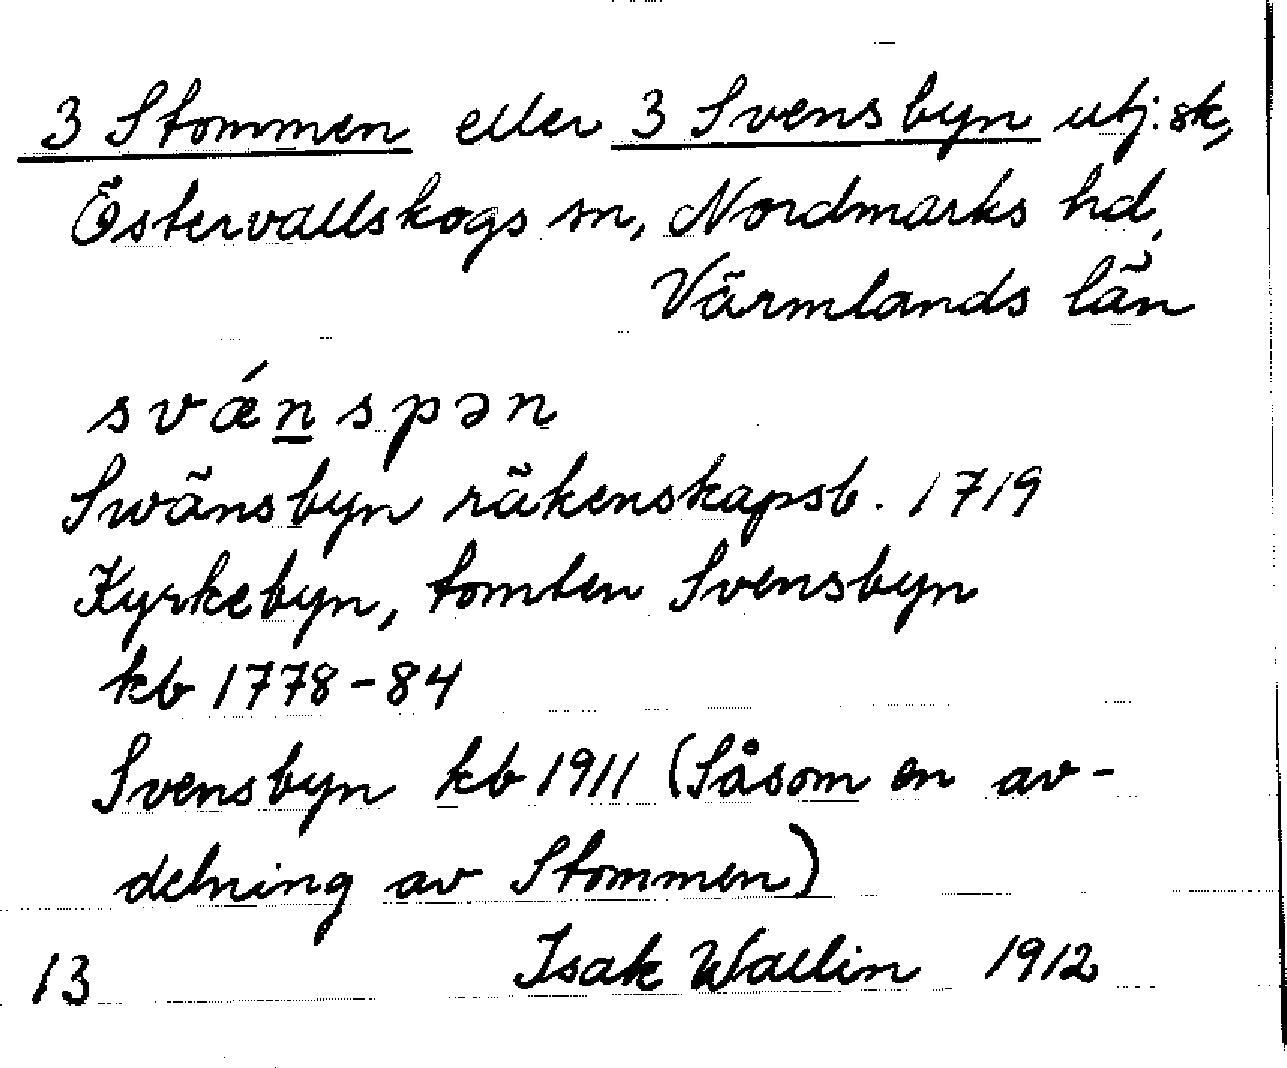 3 Stommen eller 3 Svensbyn utj. sk,
Östervallskogs sn, Nordmarks hd,
Värmlands län
svǽn̲spən
Swänsbyn räkenskapsb. 1719
Kyrkebyn, tomten Svensbyn
kb 1778-84
Svensbyn kb 1911 (Såsom en av-
delning av Stommen)
13 Isak Wallin 1912